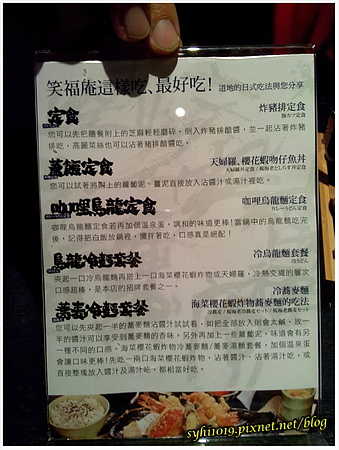 笑福庵這樣吃、最好吃! 道地的日式吃法與您分享
定食 炸豬排定食
豚カツ定食
您可以先把隨餐附上的芝麻輕輕磨碎，倒入炸豬排醋醬，並一起沾著炸豬
排吃，高麗菜絲也可以沾著豬排醋醬吃。
蓋飯定食 天婦羅、櫻花蝦吻仔魚丼
您可以試著將附上的蘿蔔泥、薑泥直接放入沾醬汁或湯汁裡吃。
咖哩烏龍定食 咖哩烏龍麵定食
カレーうどん定食
咖哩烏龍麵定食若再加個溫泉蛋，調和的味道更棒!當鍋中的烏龍麵吃完
後，記得把白飯放鍋裡，攪拌著吃，口感真是絕配!
烏龍冷麵套餐 冷烏龍麵套餐
冷うどん
夾起一口冷烏龍麵再搭上一口海菜櫻花蝦炸物或天婦羅，冷熱交織的層次
口感超棒，是本店的招牌套餐之一。
蕎麥冷麵套餐 冷蕎麥麵
海菜櫻花蝦炸物蕎麥麵的吃法
您可以先夾起一半的蕎麥麵沾醬汁試試看，如把全部放入則會太鹹，放一
半的醬汁可以享受到蕎麥麵的香味。另外再加上一些蘿蔔泥，味道會有另
一種不同的口感。海菜櫻花蝦炸物冷蕎麥麵/蕎麥湯麵套餐，加個溫泉蛋
會讓口味更棒!先吃一兩口海菜櫻花蝦炸物，沾著醬汁、沾著湯汁吃，或
直接整塊放入醬汁及湯汁吃，都相當好吃。
syhi1019.pixnet.net/blog